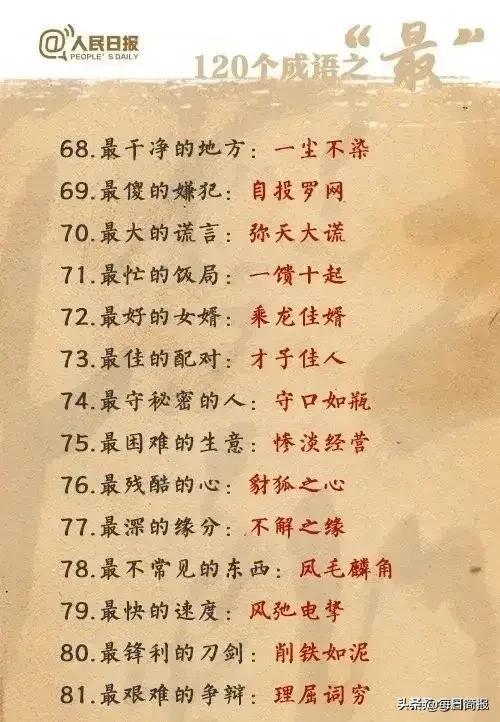 人民日报
PEOPLE'S DAILY
120个成语之“最”
68.最干净的地方：一尘不染
69.最傻的嫌犯：自投罗网
70.最大的谎言：弥天大谎
71.最忙的饭局：一馈十起
72.最好的女婿：乘龙佳婿
73.最佳的配对：才子佳人
74.最守秘密的人：守口如瓶
75.最困难的生意：惨淡经营
76.最残酷的心：豺狐之心
77.最深的缘分：不解之缘
78.最不常见的东西：凤毛麟角
79.最快的速度：风弛电掣
80.最锋利的刀剑：削铁如泥
81.最艰难的争辩：理屈词穷
头条@每日简报